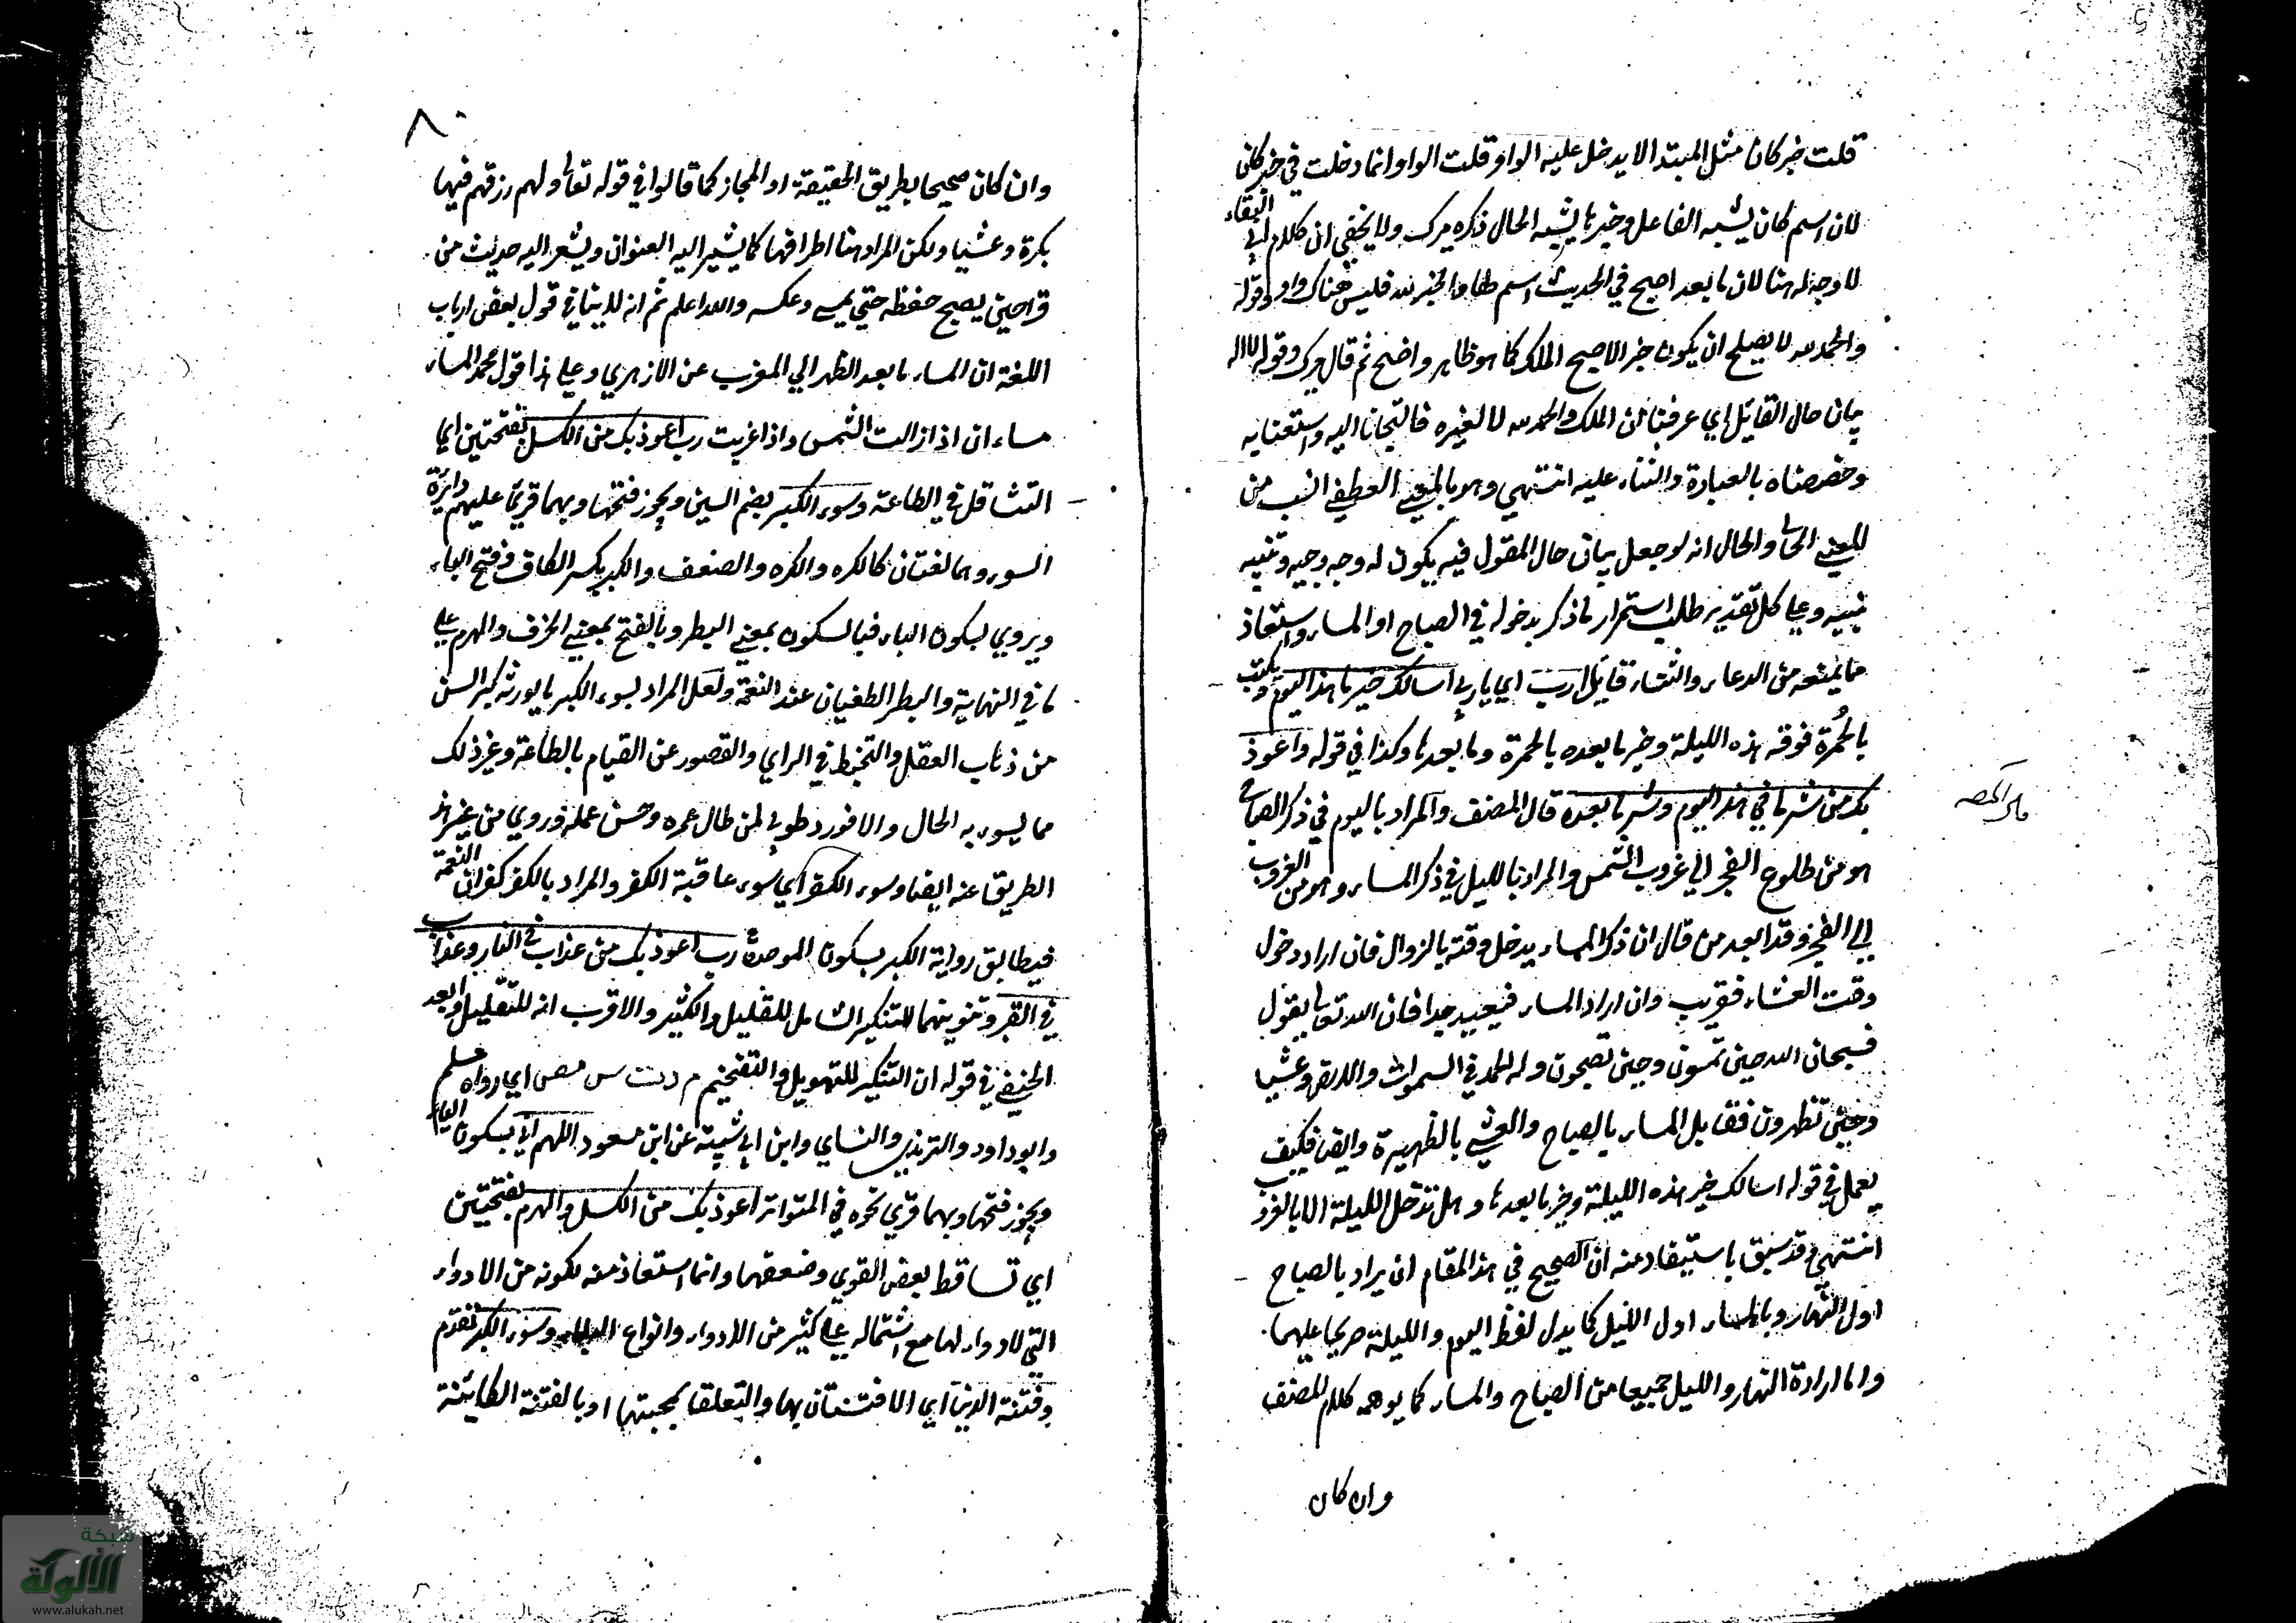 قلت خبر كان مثل المبتدا لا يدخل عليه الواو قلت الواو انما دخلت في خبر كان
لان اسم كان يشبه الفاعل وخبرها يشبه الحال ذكره ميرك ولا يخفي ان كلام ابي البقاء
لا وجه له هنا لان ما بعد اصبح في الحديث اسم ظاهر والخبر لله فليس هناك واو وقوله
والحمد لله لا يصلح ان يكون خبر الاصبح الملك كما هو ظاهر واضح ثم قال ميرك وقوله لا اله
بيان حال القائل اي عرفنا ان الملك والحمد لله لا لغيره فالتجانا اليه واستعنا به
وخصصناه بالعبادة والثناء عليه انتهي وهو بالمعني العطفي انسب من
المعني الحالي والحال انه لو جعل بيان حال المقول فيه يكون له وجه وجيه وتنبيه
نبيه وعلي كل تقدير طلب استمرار ما ذكر بدخوله في الصباح او المساء واستعاذ
مما يمنعه من الدعاء والثناء قائلا رب اي يا رب اسالك خير ما في هذا اليوم ويكتب
بالحمرة فوقه هذه الليلة وخير ما بعده بالحمرة وما بعدها وكذا في قوله واعوذ
بك من شر ما في هذا اليوم وشر ما بعده قال المصنف والمراد باليوم في ذكر الصباح
هو من طلوع الفجر الي غروب الشمس والمراد بالليل في ذكر المساء وهو من الغروب
الي الفجر وقد ابعد من قال ان ذكر المساء يدخل وقته بالزوال فان اراد دخول
وقت العشاء فقريب وان اراد المساء فبعيد جدا فان الله تعالي يقول
فسبحان الله حين تمسون وحين تصبحون وله الحمد في السموات والارض وعشيا
وحين تظهرون فقابل المساء بالصباح والعشي بالظهيرة وايضا فكيف
يعمل في قوله اسالك خير هذه الليلة وخير ما بعدها وهل تدخل الليلة الا بالغروب
انتهي وقد سبق ما يستفاد منه ان الصحيح في هذا المقام ان يراد بالصباح
اول النهار وبالمساء اول الليل كما يدل لفظ اليوم والليلة صريحا عليهما
واما ارادة النهار والليل جميعا من الصباح والمساء كما يوهمه كلام المصنف
وان كان
وان كان صحيحا بطريق الحقيقة او المجاز كما قالوا في قوله تعالي ولهم رزقهم فيها
بكرة وعشيا ولكن المراد هنا اطرافها كما يشير اليه العنوان ويشعر اليه حديث من
قرا حين يصبح حفظه حتي يمسي وعكسه والله اعلم ثم انه لا ينافي قول بعض ارباب
اللغة ان المساء ما بعد الظهر الي المغرب عن الازهري وعلي هذا قول محمد المساء
مساءان اذا زالت الشمس واذا غربت رب اعوذ بك من الكسل بفتحتين اي
التثاقل في الطاعة وسوء الكبر بضم السين ويجوز فتحها وبهما قرئ عليهم دائرة
السوء وهما لغتان كالكره والكره والضعف والكبر بكسر الكاف وفتح الباء
ويروي بسكون الباء فبالسكون بمعني البطر وبالفتح بمعني الخرف والهرم علي
ما في النهاية والبطر الطغيان عند النعمة ولعل المراد بسوء الكبر ما يورثه كبر السن
من ذهاب العقل والتخبط في الراي والقصور عن القيام بالطاعة وغير ذلك
مما يسوء به الحال والا فورد طوبي لمن طال عمره وحسن عمله وروي من غير هذا
الطريق عنه ايضا وسوء الكفر اي سوء عاقبة الكفر والمراد بالكفر كفران النعمة
فيطابق رواية الكبر بسكون الموحدة رب اعوذ بك من عذاب في النار وعذاب
في القبر وتنوينهما للتنكير الشامل للقليل والكثير والاقرب انه للتقليل وابعد
الحنفي في قوله ان التنكير للتهويل والتفخيم م د ت س مص اي رواه مسلم
وابو داود والترمذي والنساي وابن ابي شيبة عن ابن مسعود اللهم اني بسكون الياء
ويجوز فتحها وبهما قرئ نحوه في المتواتر اعوذ بك من الكسل والهرم بفتحتين
اي تساقط بعض القوي وضعفهما وانما استعاذ منه لكونه من الادواء
التي لا دواء لها مع اشتماله علي كثير من الادواء وانواع البلاء وسوء الكبر تقدم
وفتنة الدنيا اي الافتتان بها والتعلق بمحبتها او بالفتنة الكائنة
شبكة
الألوكة
www.alukah.net